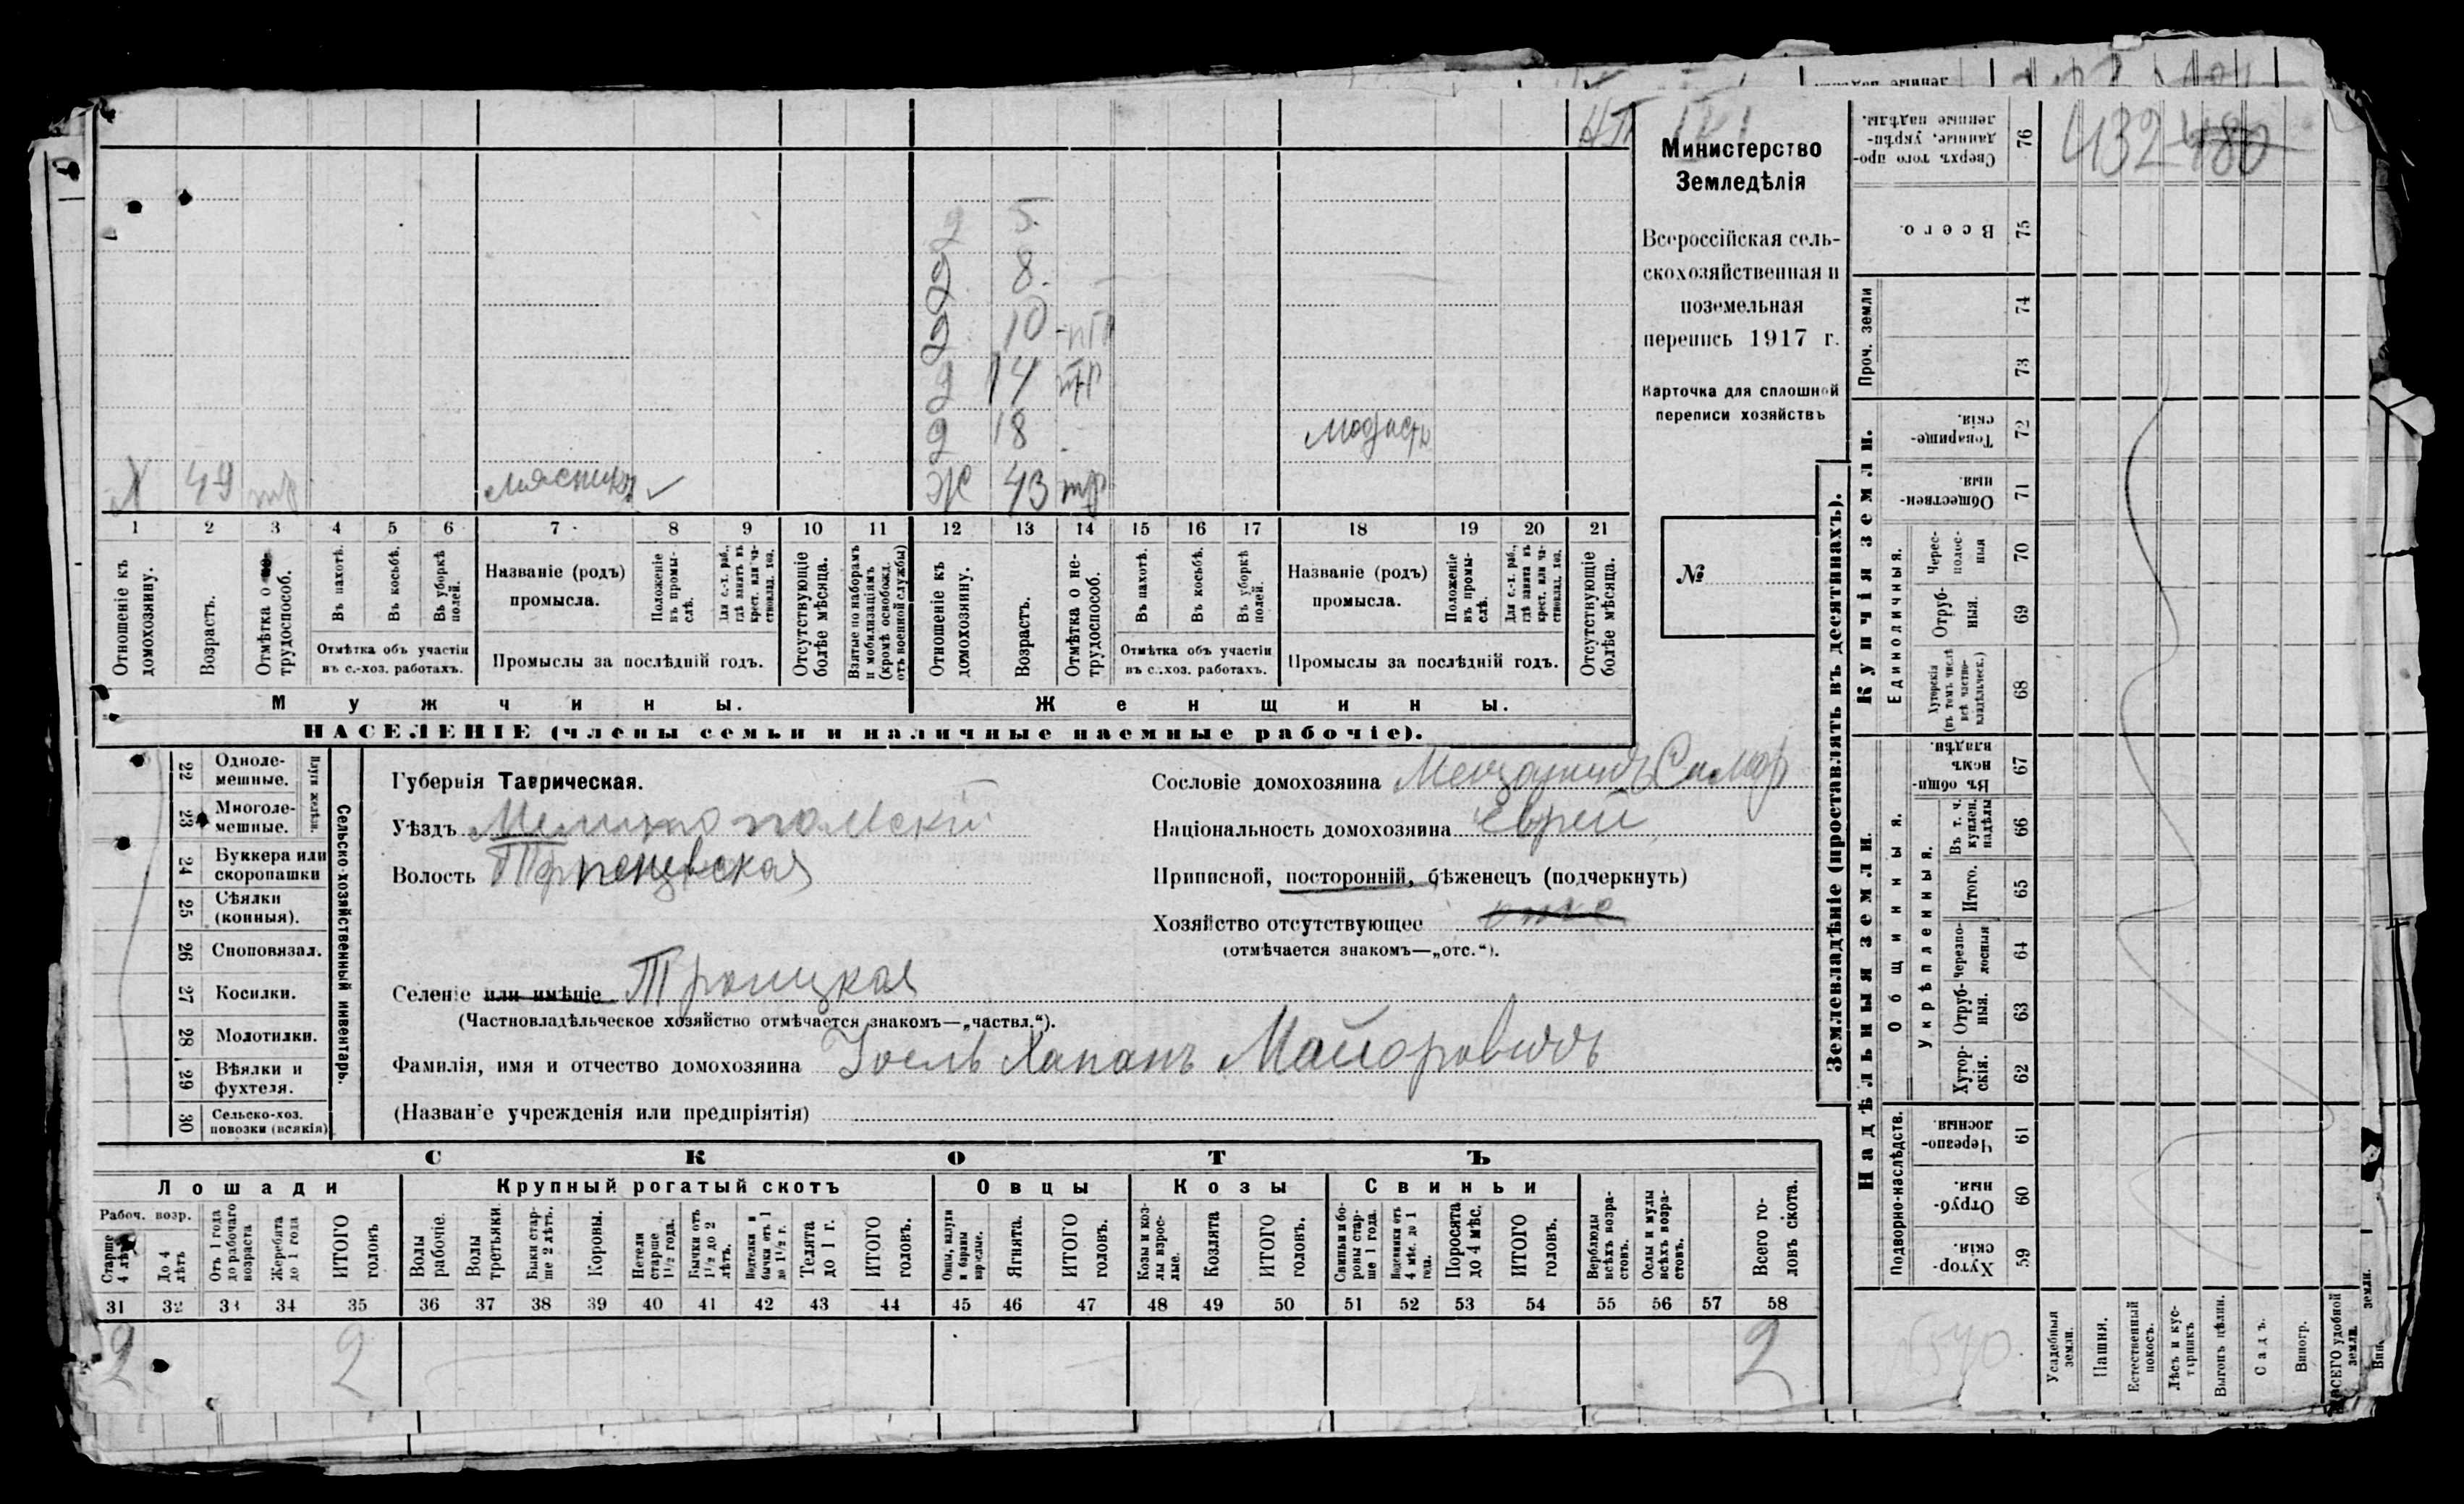 432 480
Министерство
Земледѣлія
Всероссійская сель-
скохозяйственная и
поземельная
перепись 1917 г.
Карточка для сплошной
переписи хозяйствъ
№
д 5
д 8.
д 10 -
д 14
д 18 модистк
Х 49 тр мясникъ ✓ Ж 43 тр
1 2 3 4 5 6 7 8 9 10 11 12 13 14 15 16 17 18 19 20 21
Отношеніе къ домохозяину.
Возрастъ.
Отмѣтка о не-
трудоспособ.
Въ пахотѣ.
Въ косьбѣ.
Въ уборкѣ полей.
Отмѣтка объ участіи
въ с.-хоз. работахъ.
Названіе (родъ)
промысла.
Положеніе въ промы-
слѣ.
Для с.-х. раб., гдѣ занятъ въ крест. или ча-
стновлад. хоз.
Промыслы за послѣдній годъ.
Отсутствующіе болѣе мѣсяца.
Взятые по наборамъ и мобилизаціямъ (кромѣ освобожд. отъ военной службы)
Отношеніе къ домохозяину.
Возрастъ.
Отмѣтка о не-
трудоспособ.
Въ пахотѣ.
Въ косьбѣ.
Въ уборкѣ полей.
Отмѣтка объ участіи
въ с.-хоз. работахъ.
Названіе (родъ)
промысла.
Положеніе въ промы-
слѣ.
Для с.-х. раб., гдѣ занята въ крест. или ча-
стновлад. хоз.
Промыслы за послѣдній годъ.
Отсутствующіе болѣе мѣсяца.
Мужчины.
Женщины.
НАСЕЛЕНІЕ (члены семьи и наличные наемные рабочіе).
Сельско-хозяйственный инвентарь.
Плуги желѣзн.
22 Одноле-
мешные.
23 Многоле-
мешные.
24 Буккера или
скоропашки
25 Сѣялки
(конныя).
26 Сноповязал.
27 Косилки.
28 Молотилки.
29 Вѣялки и
фухтеля.
30 Сельско-хоз.
повозки (всякія)
Губернія Таврическая.
Уѣздъ Мелитопольскій
Волость Терпеньевская
Селеніе или имѣніе Троицкая
(Частновладѣльческое хозяйство отмѣчается знакомъ—„частвл.“).
Фамилія, имя и отчество домохозяина Іосель Хапанъ Майоровичъ
(Названіе учрежденія или предпріятія)
Сословіе домохозяина Мещанинъ Симфр
Національность домохозяина еврей
Приписной, посторонній, бѣженецъ (подчеркнуть)
Хозяйство отсутствующее
(отмѣчается знакомъ—„отс.“).
СКОТЪ
Лошади
Крупный рогатый скотъ
Овцы
Козы
Свиньи
Рабоч. возр.
Старше 4 лѣтъ
До 4 лѣтъ
Отъ 1 года до рабочаго возраста
Жеребята до 1 года
ИТОГО головъ
Волы рабочіе.
Волы третьяки.
Быки стар-
ше 2 лѣтъ.
Коровы.
Нетели старше 1½ года.
Бычки отъ 1½ до 2 лѣтъ.
Подтелки и бычки отъ 1 до 1½ г.
Телята до 1 г.
ИТОГО головъ.
Овцы, валухи и бараны взрослые.
Ягнята.
ИТОГО головъ.
Козы и коз-
лы взрос-
лые.
Козлята
ИТОГО головъ.
Свиньи и бо-
ровы стар-
ше 1 года.
Подсвинки отъ 4 мѣс. до 1 года.
Поросята до 4 мѣс.
ИТОГО головъ.
Верблюды всѣхъ возра-
стовъ.
Ослы и мулы всѣхъ возра-
стовъ.
Всего го-
ловъ скота.
31 32 33 34 35 36 37 38 39 40 41 42 43 44 45 46 47 48 49 50 51 52 53 54 55 56 57 58
2 2 2
Землевладѣніе (проставлять въ десятинахъ).
Надѣльныя земли.
Купчія земли.
Проч. земли
Подворно-наслѣдств.
Общинныя.
Укрѣпленныя.
Единоличныя.
Хутор-
скія. 59
Отруб-
ныя. 60
Черезпо-
лосныя. 61
Хутор-
скія. 62
Отруб-
ныя. 63
Черезпо-
лосныя 64
Итого. 65
Въ т. ч. куплен. надѣлы 66
Въ общин-
номъ владѣн. 67
Хуторскія (въ томъ числѣ всѣ частно-
владѣльческ.) 68
Отруб-
ныя. 69
Черес-
полос-
ныя 70
Обществен-
ныя. 71
Товарище-
скія. 72
73
74
Всего. 75
Сверхъ того про-
данные, укрѣп-
ленные надѣлы. 76
540
Усадебныя земли.
Пашня.
Естественный покосъ.
Лѣсъ и кус-
тарникъ
Выгонъ цѣлин.
Садъ.
Виногр.
ВСЕГО удобной земли.